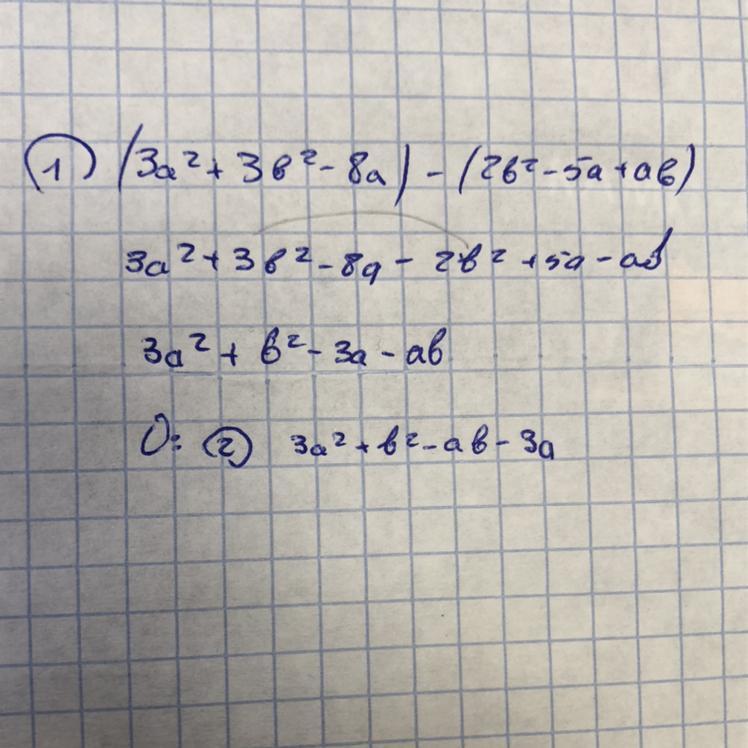 1) (3a² + 3в² - 8a) - (2в² - 5a + aв)
3a² + 3в² - 8a - 2в² + 5a - aв
3a² + в² - 3a - aв
О: 2) 3a² + в² - aв - 3a